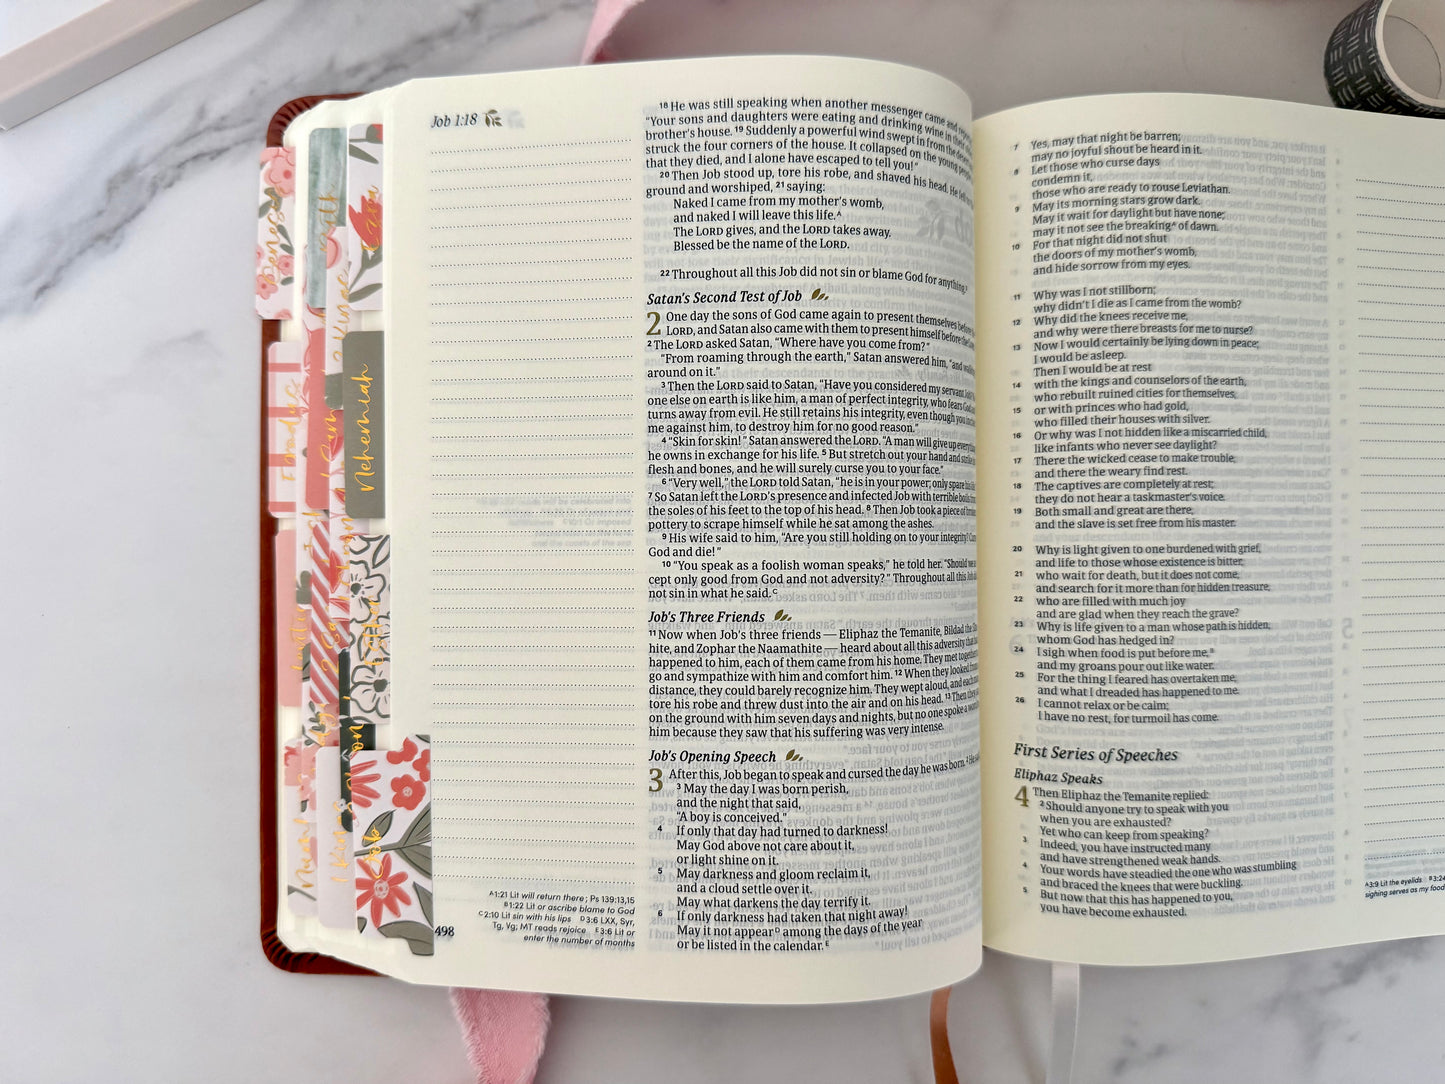 Job 1:18
18 He was still speaking when another messenger came and
"Your sons and daughters were eating and drinking wine in their
brother's house. 19 Suddenly a powerful wind swept in from the desert
struck the four corners of the house. It collapsed on the young people
that they died, and I alone have escaped to tell you!"
20 Then Job stood up, tore his robe, and shaved his head. He fell
ground and worshiped, 21 saying:
Naked I came from my mother's womb,
and naked I will leave this life.A
The LORD gives, and the LORD takes away.
Blessed be the name of the LORD.
22 Throughout all this Job did not sin or blame God for anything.
Satan's Second Test of Job
2 One day the sons of God came again to present themselves before
LORD, and Satan also came with them to present himself before the
2 The LORD asked Satan, "Where have you come from?"
"From roaming through the earth," Satan answered him, "and
around on it."
3 Then the LORD said to Satan, "Have you considered my servant
one else on earth is like him, a man of perfect integrity, who fears God
turns away from evil. He still retains his integrity, even though you
me against him, to destroy him for no good reason."
4 "Skin for skin!" Satan answered the LORD. "A man will give up
he owns in exchange for his life. 5 But stretch out your hand and strike
flesh and bones, and he will surely curse you to your face."
6 "Very well," the LORD told Satan, "he is in your power; only spare
7 So Satan left the LORD's presence and infected Job with terrible boils
the soles of his feet to the top of his head. 8 Then Job took a piece of
pottery to scrape himself while he sat among the ashes.
9 His wife said to him, "Are you still holding on to your integrity?
God and die!"
10 "You speak as a foolish woman speaks," he told her. "Should we
cept only good from God and not adversity?" Throughout all this Job
not sin in what he said.C
Job's Three Friends
11 Now when Job's three friends — Eliphaz the Temanite, Bildad the
hite, and Zophar the Naamathite — heard about all this adversity that
happened to him, each of them came from his home. They met together
go and sympathize with him and comfort him. 12 When they looked from
distance, they could barely recognize him. They wept aloud, and each
tore his robe and threw dust into the air and on his head. 13 Then they
on the ground with him seven days and nights, but no one spoke a word
him because they saw that his suffering was very intense.
Job's Opening Speech
3 After this, Job began to speak and cursed the day he was born. 2 He
3 May the day I was born perish,
and the night that said,
"A boy is conceived."
4 If only that day had turned to darkness!
May God above not care about it,
or light shine on it.
5 May darkness and gloom reclaim it,
and a cloud settle over it.
May what darkens the day terrify it.
6 If only darkness had taken that night away!
May it not appearD among the days of the year
or be listed in the calendar.E
A 1:21 Lit will return there; Ps 139:13,15
B 1:22 Lit or ascribe blame to God
C 2:10 Lit sin with his lips D 3:6 LXX, Syr,
Tg, Vg; MT reads rejoice E 3:6 Lit or
enter the number of months
498
7 Yes, may that night be barren;
may no joyful shout be heard in it.
8 Let those who curse days
condemn it,
those who are ready to rouse Leviathan.
9 May its morning stars grow dark.
May it wait for daylight but have none;
may it not see the breakingA of dawn.
10 For that night did not shut
the doors of my mother's womb,
and hide sorrow from my eyes.
11 Why was I not stillborn;
why didn't I die as I came from the womb?
12 Why did the knees receive me,
and why were there breasts for me to nurse?
13 Now I would certainly be lying down in peace;
I would be asleep.
Then I would be at rest
14 with the kings and counselors of the earth,
who rebuilt ruined cities for themselves,
15 or with princes who had gold,
who filled their houses with silver.
16 Or why was I not hidden like a miscarried child,
like infants who never see daylight?
17 There the wicked cease to make trouble,
and there the weary find rest.
18 The captives are completely at rest;
they do not hear a taskmaster's voice.
19 Both small and great are there,
and the slave is set free from his master.
20 Why is light given to one burdened with grief,
and life to those whose existence is bitter,
21 who wait for death, but it does not come,
and search for it more than for hidden treasure,
22 who are filled with much joy
and are glad when they reach the grave?
23 Why is life given to a man whose path is hidden,
whom God has hedged in?
24 I sigh when food is put before me,B
and my groans pour out like water.
25 For the thing I feared has overtaken me,
and what I dreaded has happened to me.
26 I cannot relax or be calm;
I have no rest, for turmoil has come.
First Series of Speeches
Eliphaz Speaks
4 Then Eliphaz the Temanite replied:
2 Should anyone try to speak with you
when you are exhausted?
Yet who can keep from speaking?
3 Indeed, you have instructed many
and have strengthened weak hands.
4 Your words have steadied the one who was stumbling
and braced the knees that were buckling.
5 But now that this has happened to you,
you have become exhausted.
A 3:9 Lit the eyelids B 3:24
sighing serves as my food
Genesis
Exodus
Ezra
Nehemiah
Job